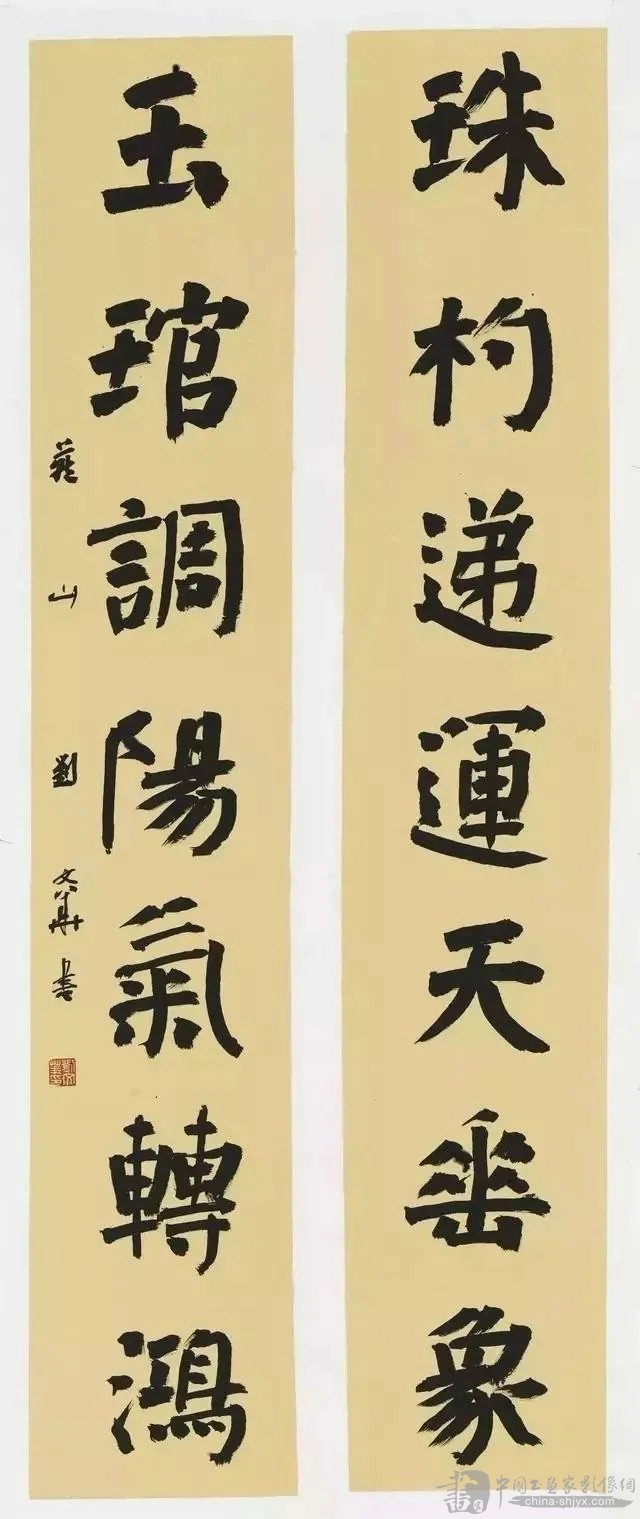 珠杓递運天垂象
玉琯調陽氣轉鴻
燕山劉文華書
中國书画家影像網
www.china-shjyx.com